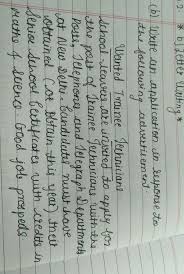 2. * b) Letter Writing *
(b) Write an application in response to
the following advertisement
Wanted Trainee Technicians
School leavers are invited to apply for
the post of Trainee Technicians with the
Posts, Telephone and Telegraph Department
at New Delhi. Candidates must have
obtained (or obtain this year) their
Senior School Certificates with credits in
Maths & Science. Good job prospects